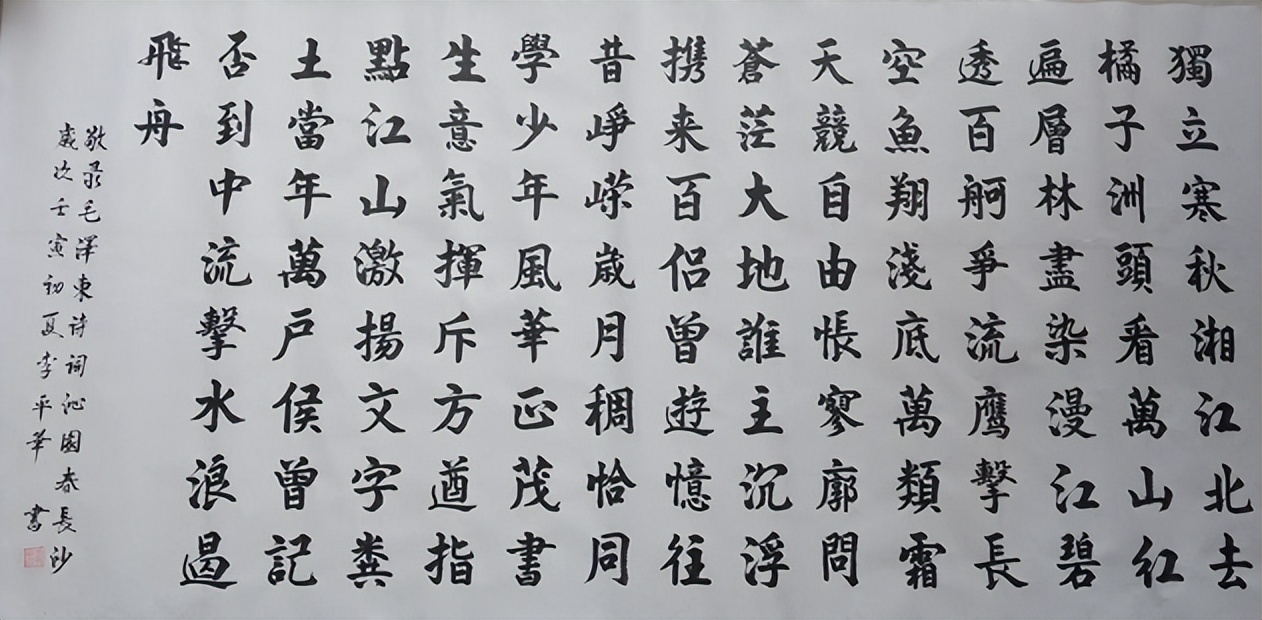 獨立寒秋湘江北去
橘子洲頭看萬山红
遍層林盡染漫江碧
透百舸爭流鹰擊長
空魚翔淺底萬類霜
天競自由悵寥廓問
蒼茫大地誰主沉浮
携来百侣曾遊憶往
昔崢嶸歲月稠恰同
學少年風華正茂書
生意氣揮斥方遒指
點江山激揚文字糞
土當年萬户侯曾記
否到中流擊水浪遏
飛舟
敬录毛澤東诗词沁園春長沙
歲次壬寅初夏李平華書